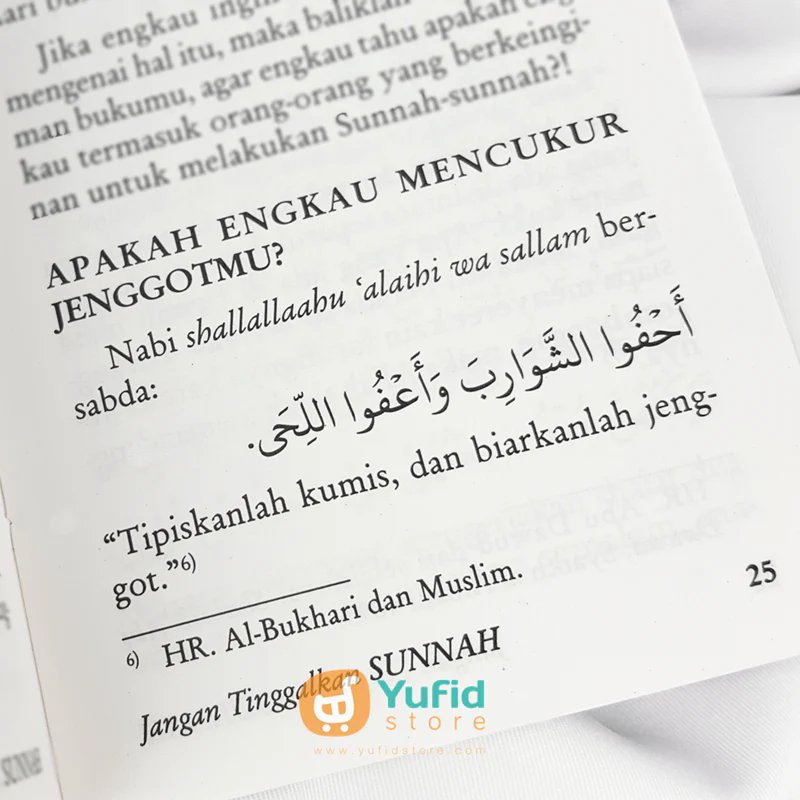 Jika engkau ingin
mengenai hal itu, maka baliklah
man bukumu, agar engkau tahu apakah eng-
kau termasuk orang-orang yang berkeingi-
nan untuk melakukan Sunnah-sunnah?!
APAKAH ENGKAU MENCUKUR
JENGGOTMU?
Nabi shallallaahu ‘alaihi wa sallam ber-
sabda:
أَحْفُوا الشَّوَارِبَ وَأَعْفُوا اللِّحَى.
“Tipiskanlah kumis, dan biarkanlah jeng-
got.”6)
6) HR. Al-Bukhari dan Muslim.
25
Jangan Tinggalkan SUNNAH
Yufid
store
www.yufidstore.com